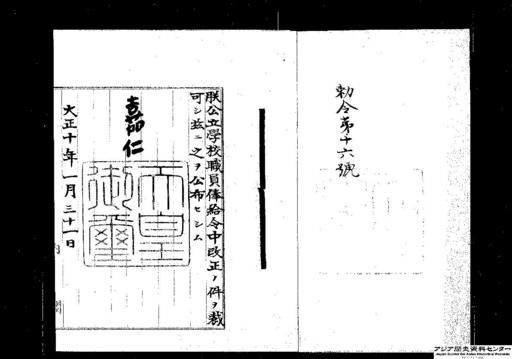 勅令第十六號
朕公立學校職員俸給令中改正ノ件ヲ裁
可シ茲ニ之ヲ公布セシム
嘉仁
天皇
御璽
大正十年一月三十一日
アジア歴史資料センター
Japan Center for Asian Historical Records